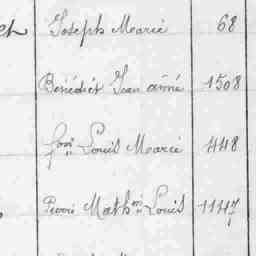 Joseph Marie 68
Bénédict Jean aimé 1508
fçois Louis Marie 448
Pierre Math Louis 1147